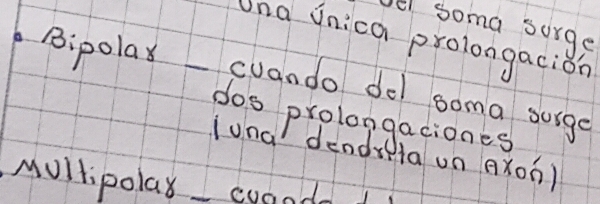 del soma surge
una única prolongación
• Bipolar – cuando del soma surge
dos prolongaciones
(una dendrita un axón)
• Multipolar –